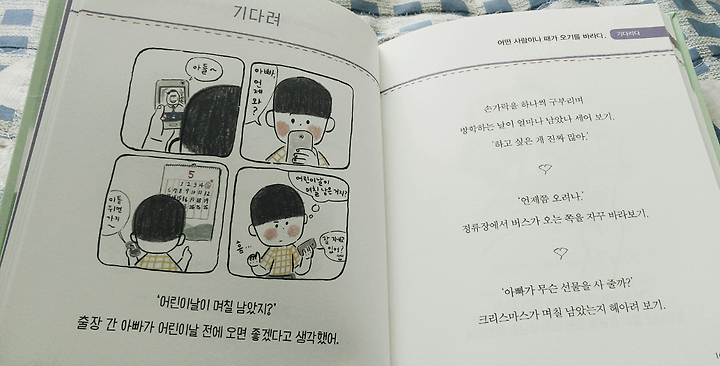 기다려
아들~
아빠,
언제
와?
5
이틀
뒤면
가지~
어린이날이
며칠 남은 거지?
잘 지내고
있어?
'어린이날이 며칠 남았지?'
출장 간 아빠가 어린이날 전에 오면 좋겠다고 생각했어.
어떤 사람이나 때가 오기를 바라다. 기다리다
손가락을 하나씩 구부리며
방학하는 날이 얼마나 남았나 세어 보기.
'하고 싶은 게 진짜 많아.'
'언제쯤 오려나.'
정류장에서 버스가 오는 쪽을 자꾸 바라보기.
'아빠가 무슨 선물을 사 줄까?'
크리스마스가 며칠 남았는지 헤아려 보기.